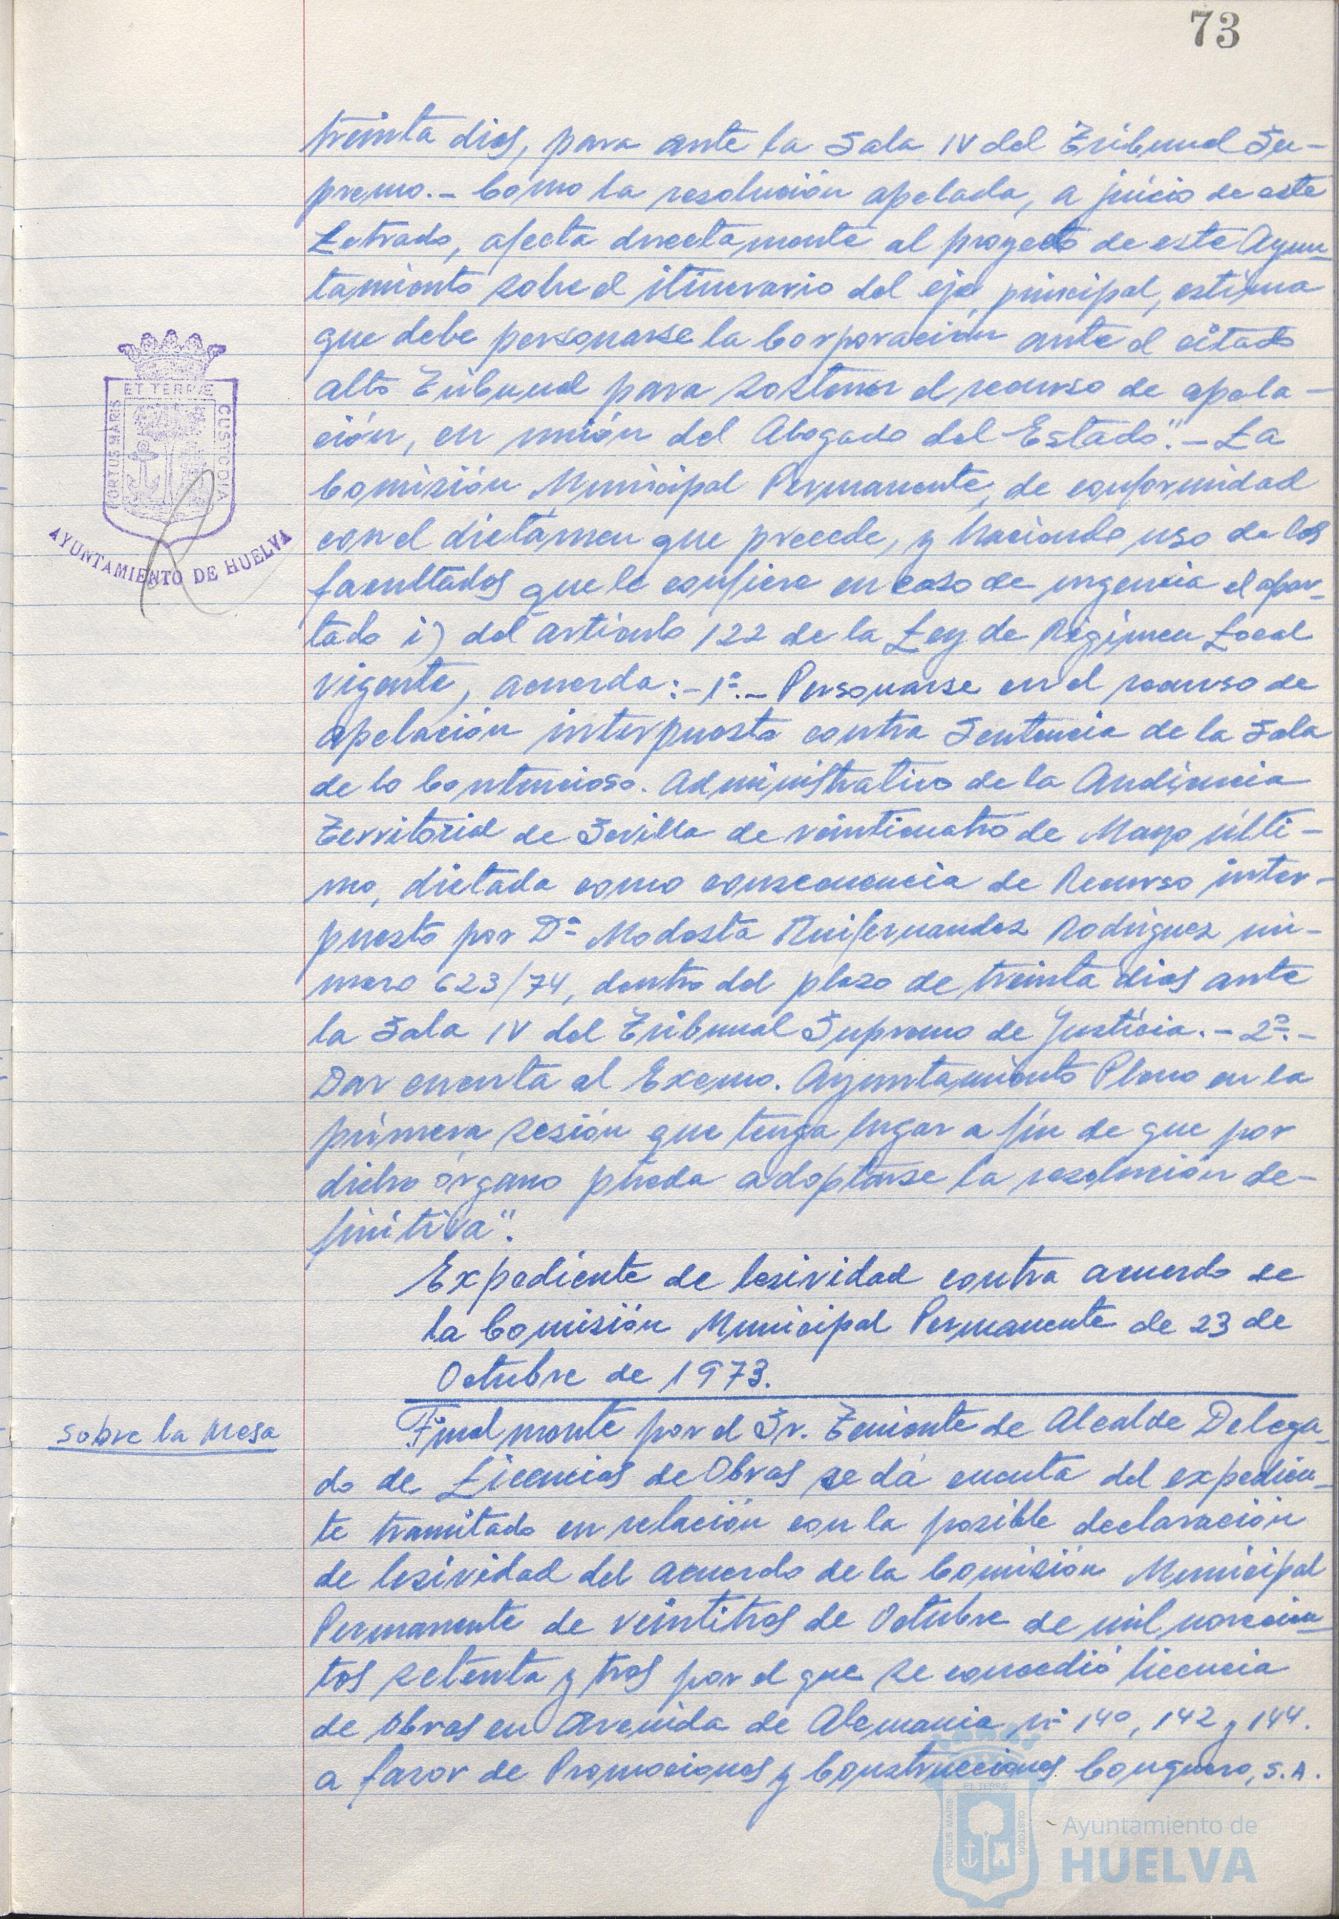 73
treinta dias, para ante la Sala IV del Tribunal Su-
premo.- Como la resolución apelada, a juicio de este
Letrado, afecta directamente al proyecto de este Ayun-
tamiento sobre el itinerario del eje principal, estima
que debe personarse la Corporación ante el citado
alto Tribunal para sostener el recurso de apela-
ción, en unión del Abogado del Estado".- La
Comisión Municipal Permanente, de conformidad
con el dictámen que precede, y haciendo uso de las
facultades que le confiere en caso de urgencia el apar-
tado i) del artículo 122 de la Ley de Régimen Local
vigente, acuerda:- 1º.- Personarse en el recurso de
apelación interpuesto contra Sentencia de la Sala
de lo Contencioso-Administrativo de la Audiencia
Territorial de Sevilla de veinticuatro de Mayo últi-
mo, dictada como consecuencia de Recurso inter-
puesto por Dª Modesta Ruifernandez Rodriguez nú-
mero 623/74, dentro del plazo de treinta dias ante
la Sala IV del Tribunal Supremo de Justicia.- 2º.-
Dar cuenta al Excmo. Ayuntamiento Pleno en la
primera sesión que tenga lugar a fin de que por
dicho órgano pueda adoptarse la resolución de-
finitiva".
Expediente de lesividad contra acuerdo de
la Comisión Municipal Permanente de 23 de
Octubre de 1973.
Sobre la Mesa
Finalmente por el Sr. Teniente de Alcalde Delega-
do de Licencias de Obras se dá cuenta del expedien-
te tramitado en relación con la posible declaración
de lesividad del acuerdo de la Comisión Municipal
Permanente de veintitres de Octubre de mil novecien-
tos setenta y tres por el que se concedió licencia
de obras en Avenida de Alemania nº 140, 142 y 144.
a favor de Promociones y Construcciones Conquero, S.A.
ET TERRAE
PORTUS MARIS
CUSTODIA
AYUNTAMIENTO DE HUELVA
ET TERRAE
PORTUS MARIS
CUSTODIA
Ayuntamiento de
HUELVA